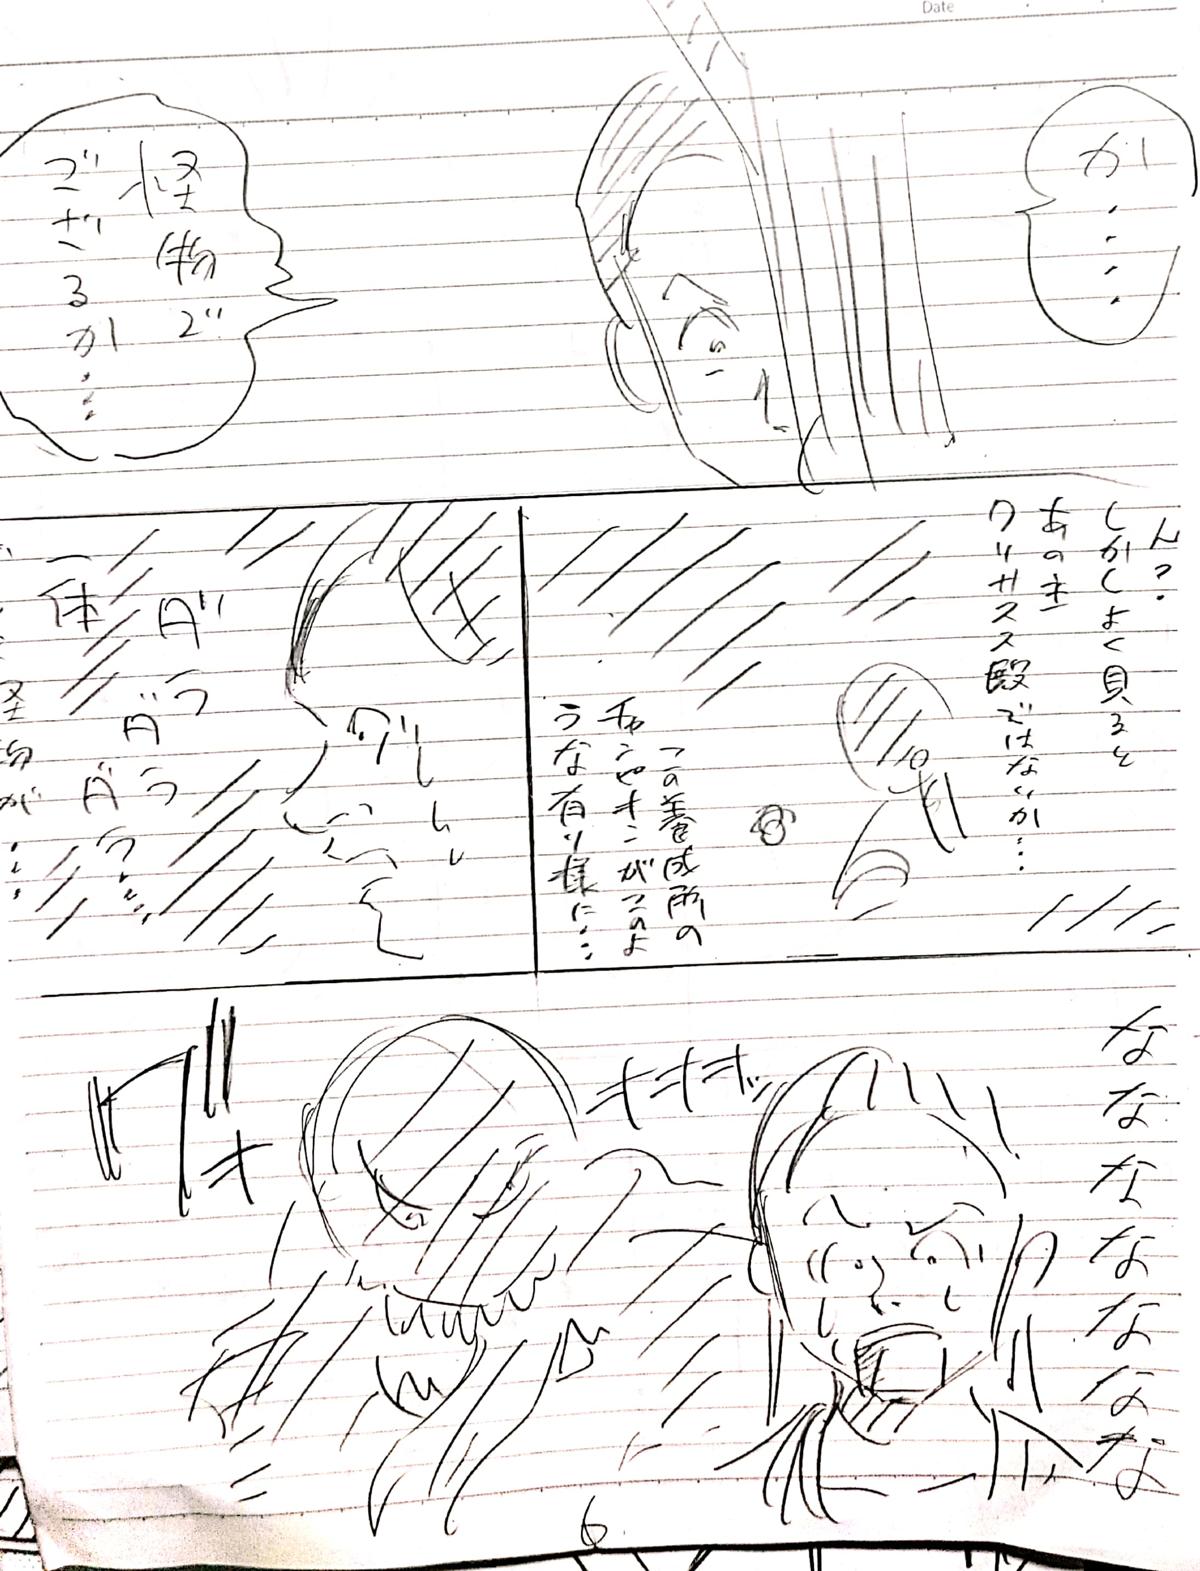 Date
か・・・・
怪物で
ござるか・・・
ん?
しかしよく見ると
あの者
クリサスス殿ではないか・・・
この養成所の
チャンピオンがこのよ
うな有り様に・・・
ダラ
ダラ
ダラ
一体
怪物が・・・
なななななな
キキキッ
グギ
6